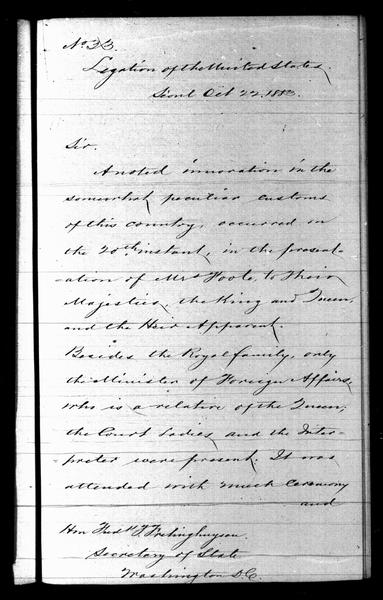 No 33.
Legation of the United States,
Seoul Oct 22. 1883.
Sir.
A noted innovation in the
somewhat peculiar customs
of this country, occurred on
the 20th instant, in the present-
ation of Mrs Foote, to Their
Majesties, the King and Queen,
and the Heir Apparent.
Besides the Royal family, only
the Minister of Foreign Affairs,
who is a relative of the Queen,
the Court Ladies, and the Inter-
preter were present. It was
attended with much ceremony
and
Hon Fredk T. Frelinghuysen.
Secretary of State
Washington D.C.